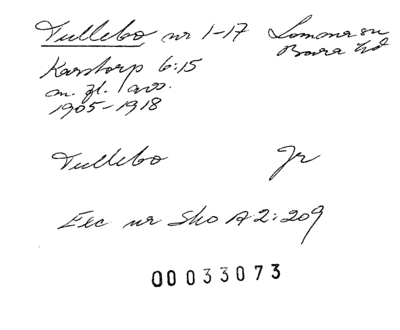 Tullebo nr 1-17 Lomma sn
Bara hd
Karstorp 6:15
m. fl. avs.
1905-1918
Tullebo Jr
Exc nr Sko A2:209
00033073